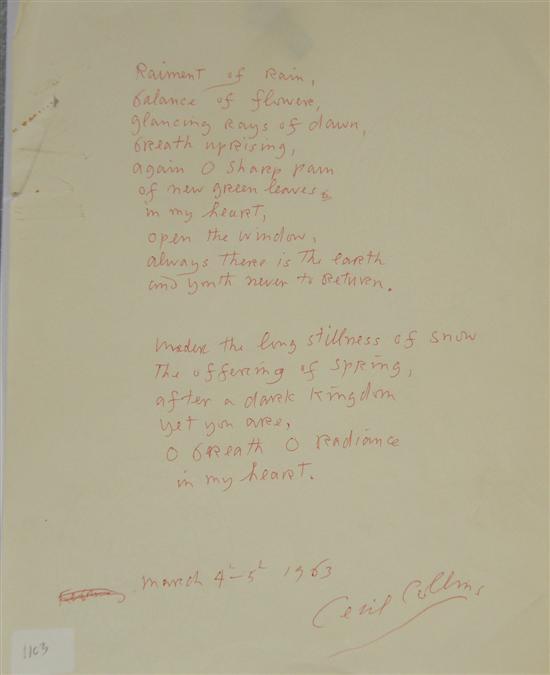 Raiment of Rain,
balance of flowers,
glancing Rays of dawn,
breath uprising,
again O sharp pain
of new green leaves
in my heart,
open the window,
always there is the earth
and youth never to Return.
under the long stillness of snow
The offering of spring,
after a dark kingdom
yet you are,
O breath O Radiance
in my heart.
March 4 - 5 1963
Cecil Collins
1103